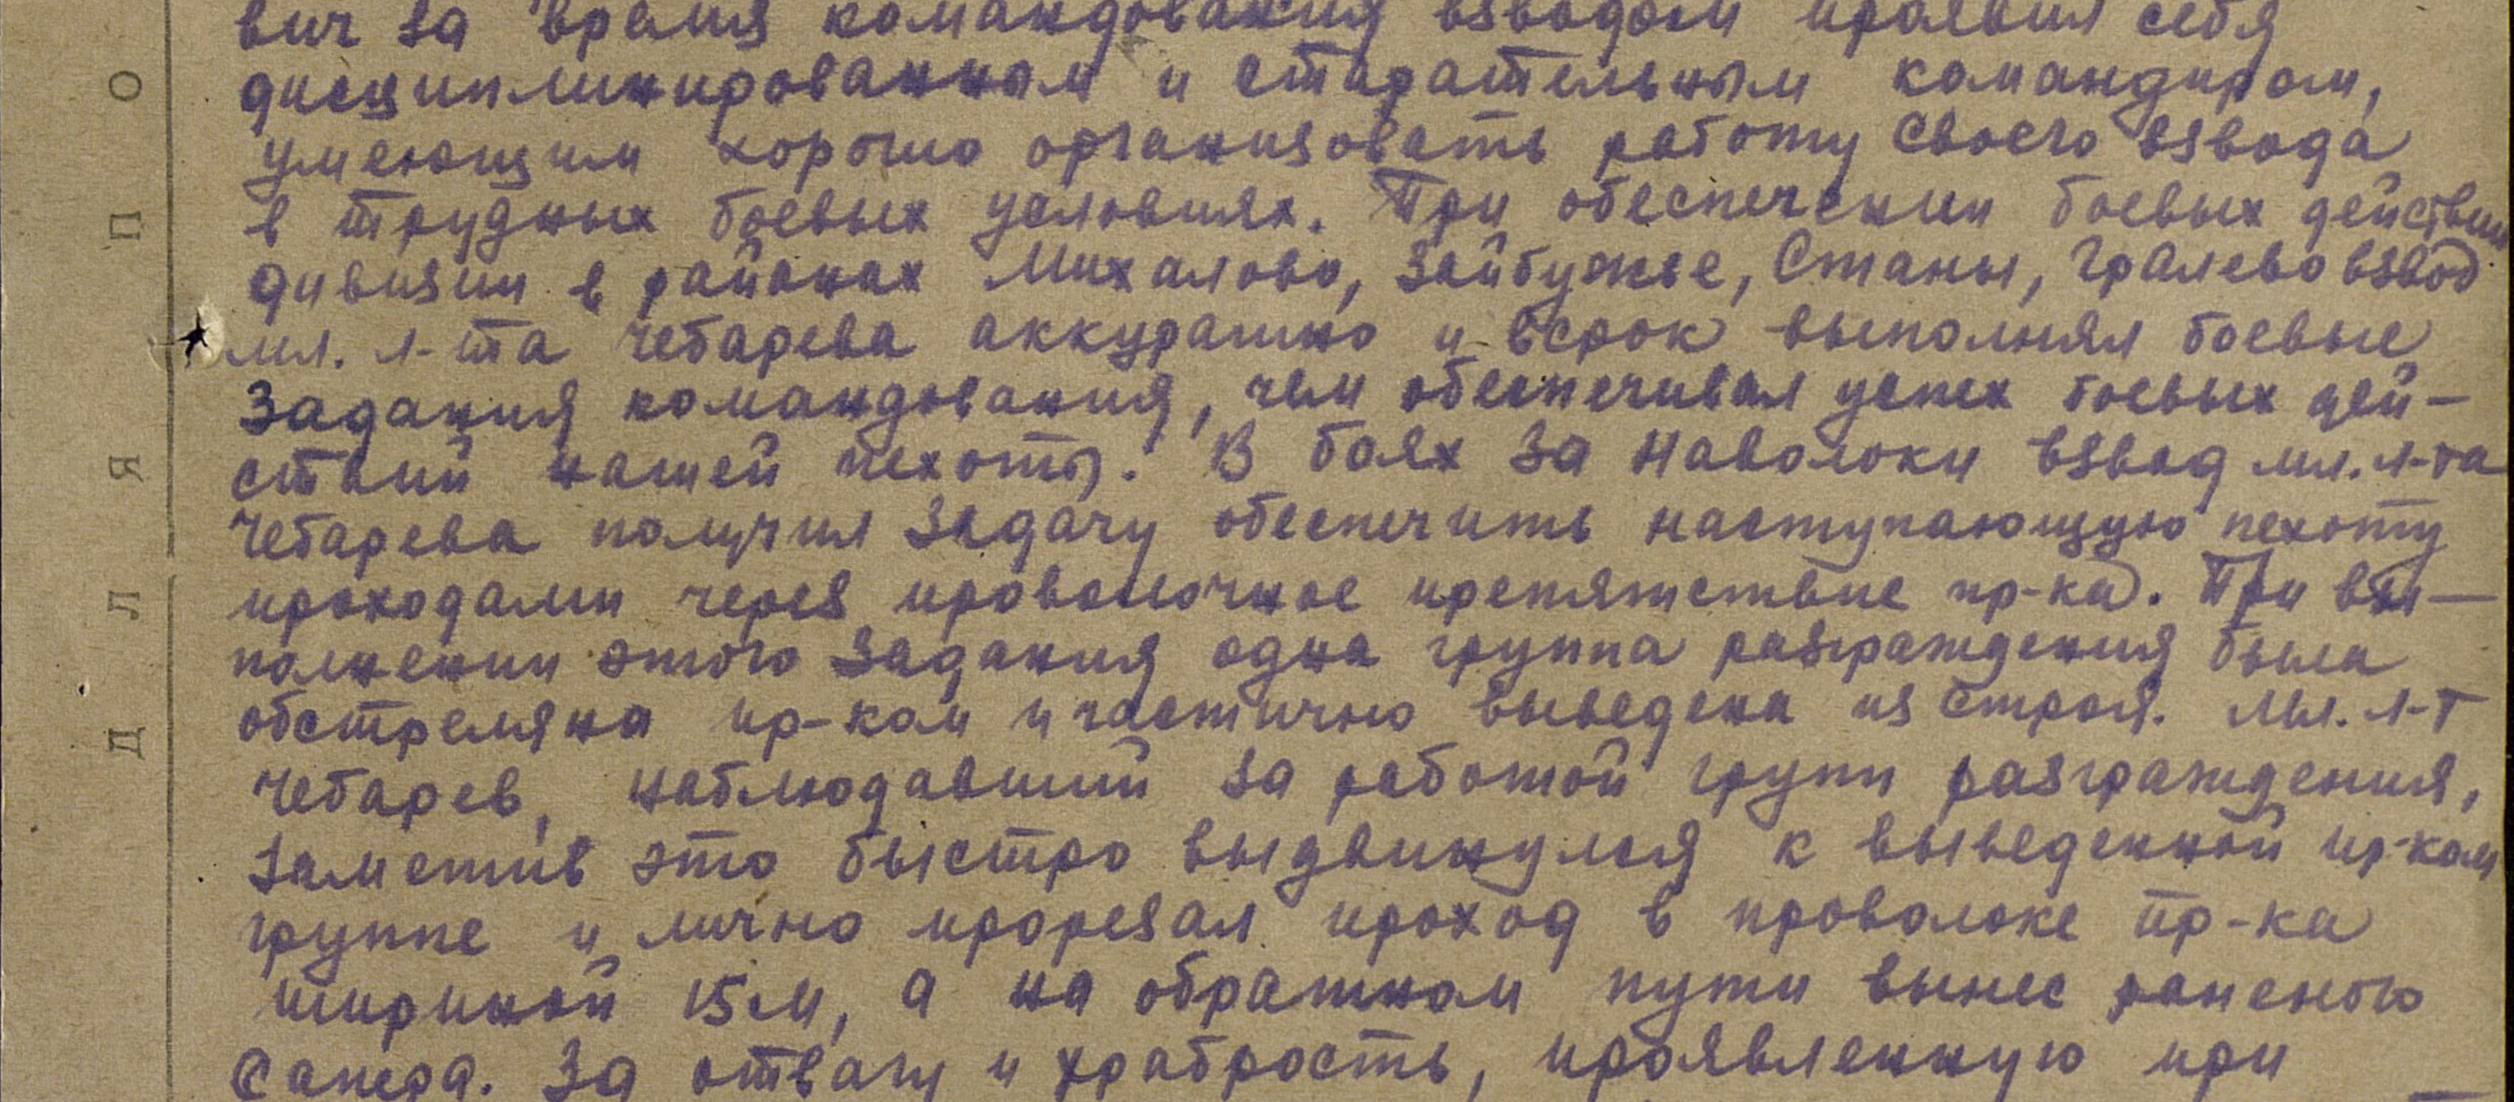 вич за время командования взводом проявил себя
дисциплинированным и старательным командиром,
умеющим хорошо организовать работу своего взвода
в трудных боевых условиях. При обеспечении боевых действии
дивизии в районах Михалово, Зайбужье, Станы, Гралево взвод
мл. л-та Чебарева аккуратно и в срок выполнял боевые
задания командования, чем обеспечивал успех боевых дей-
ствий нашей пехоты. В боях за Наволоки взвод мл. л-та
Чебарева получил задачу обеспечить наступающую пехоту
проходами через проволочное препятствие пр-ка. При вы-
полнении этого задания одна группа разграждения была
обстреляна пр-ком и частично выведена из строя. Мл. л-т
Чебарев, наблюдавший за работой групп разграждения,
заметив это быстро выдвинулся к выведенной пр-ком
группе и лично прорезал проход в проволоке пр-ка
шириной 15 м, а на обратном пути вынес раненого
сапера. За отвагу и храбрость, проявленную при
Д Л Я П О